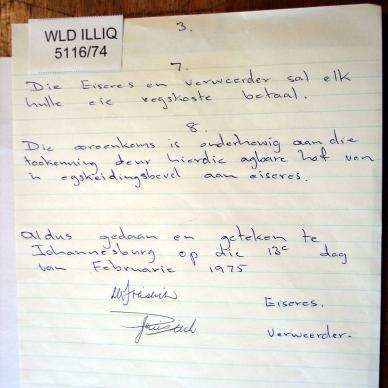 WLD ILLIQ
5116/74
3.
7.
Die Eiseres en verweerder sal elk
hulle eie regskoste betaal.
8.
Die ooreenkoms is onderhewig aan die
toekenning deur hierdie agbare hof van
'n egskeidingsbevel aan eiseres.
Aldus gedaan en geteken te
Johannesburg op die 13e dag
van Februarie 1975
Eiseres.
Verweerder.